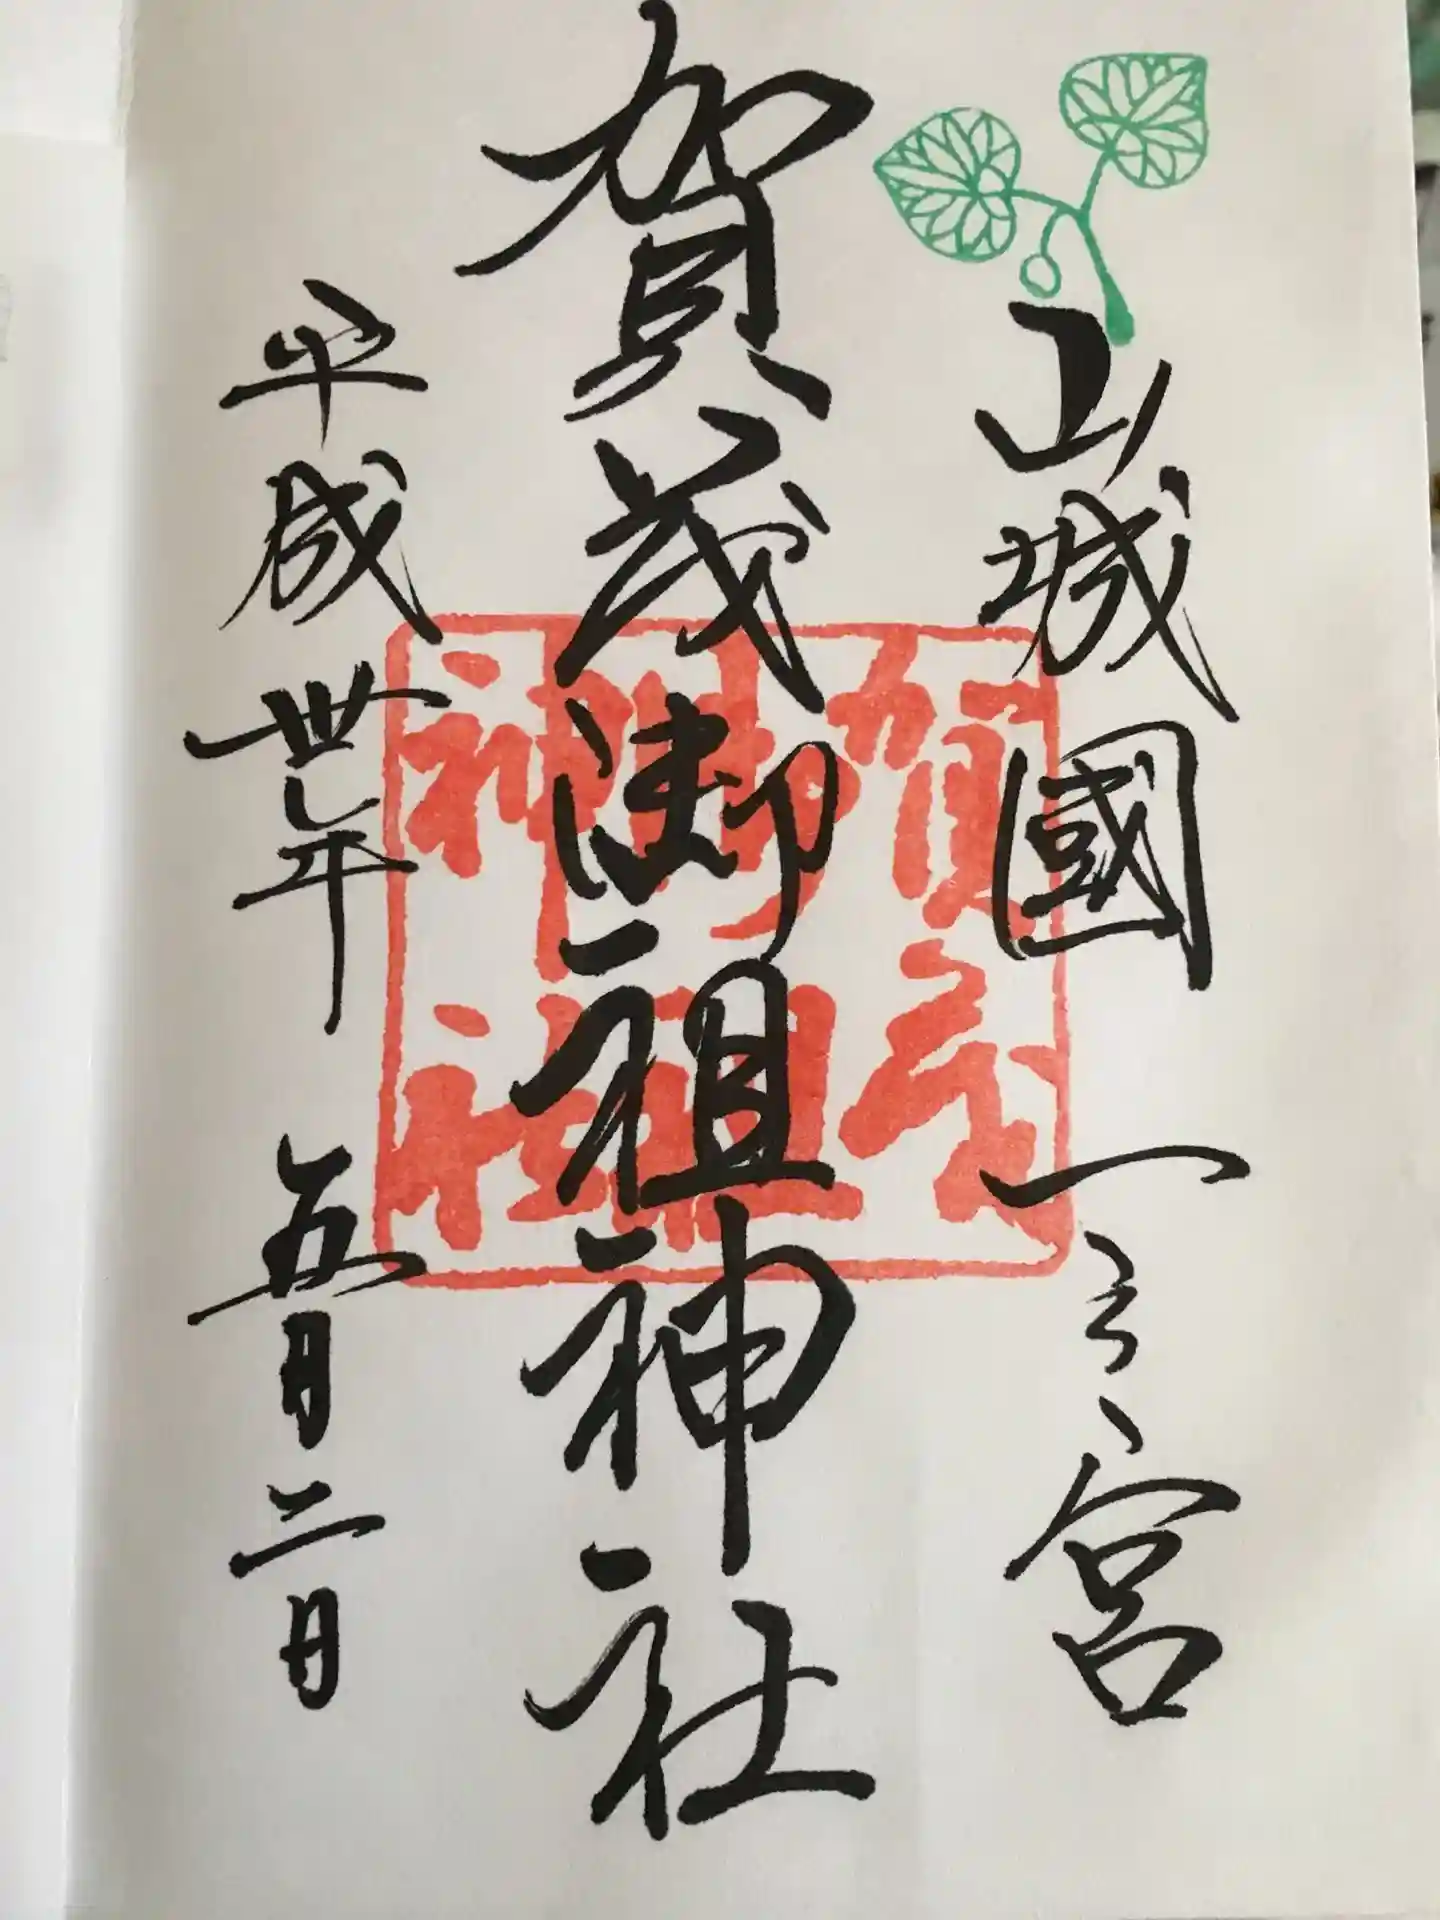 山城國一之宮
賀茂御祖神社
平成卅年 五月二日
賀茂
御祖
神社